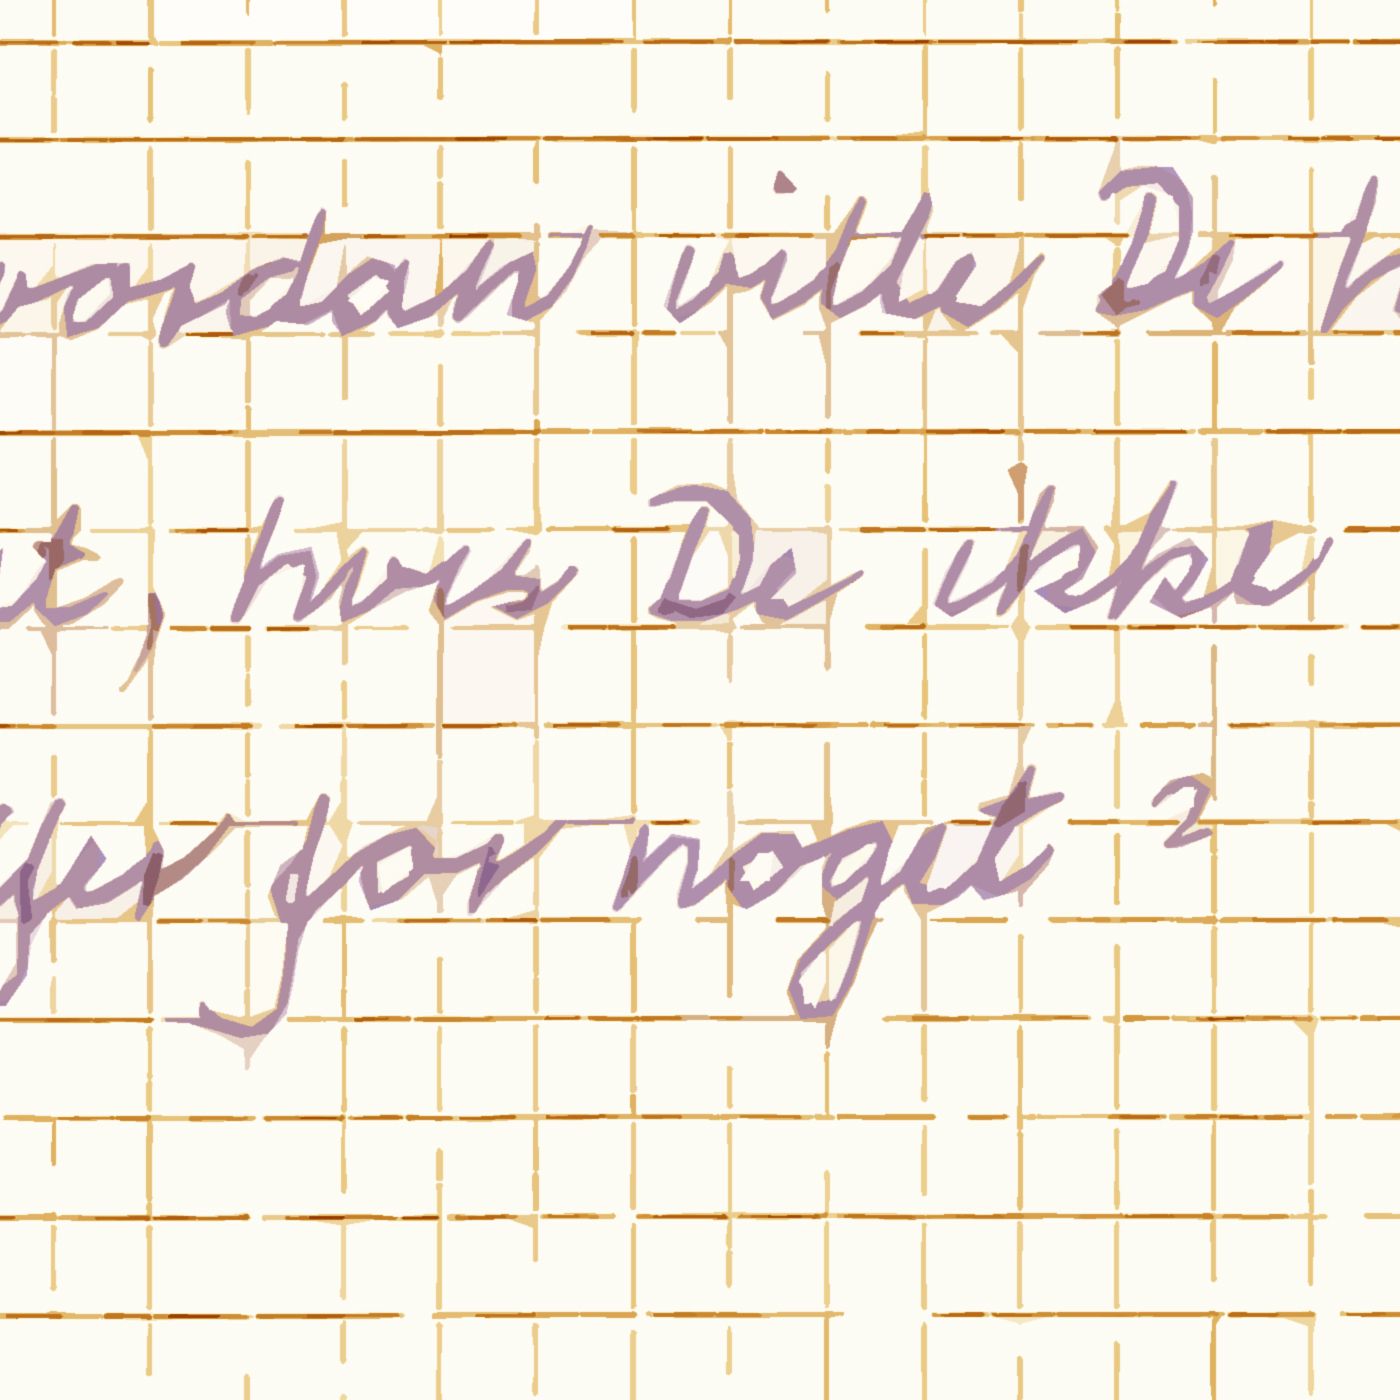 vordan ville De h
t, hvis De ikke
fer for noget ?